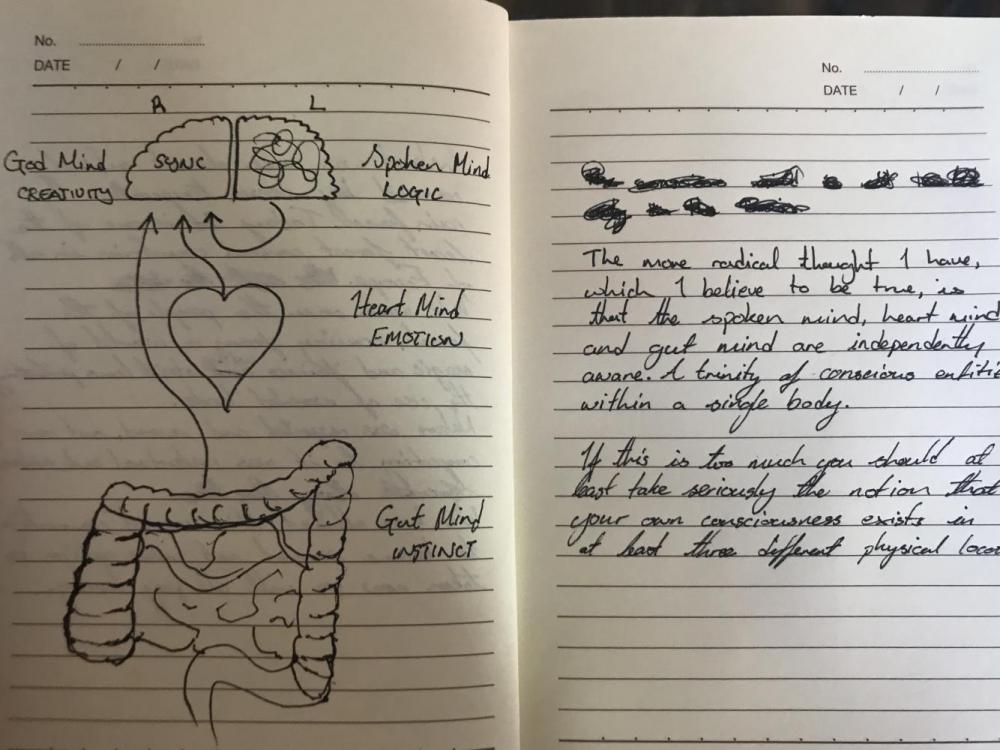 No.
DATE / /
R L
God Mind
CREATIVITY
SYNC
Spoken Mind
LOGIC
Heart Mind
EMOTION
Gut Mind
INSTINCT
No.
DATE / /
The more radical thought I have,
which I believe to be true, is
that the spoken mind, heart mind
and gut mind are independently
aware. A trinity of conscious entitie
within a single body.
If this is too much you should at
least take seriously the notion that
your own consciousness exists in
at least three different physical locat